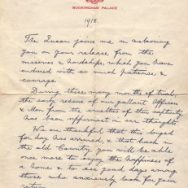 BUCKINGHAM PALACE
1918
The Queen joins me in welcoming
you on your release from the
miseries & hardships, which you have
endured with so much patience &
courage.
During these many months of trial,
the early rescue of our gallant Officers
& Men from the cruelties of their captivity
has been uppermost in our thoughts.
We are thankful that this longed
for day has arrived, & that back in
the old Country you will be able
once more to enjoy the happiness of
a home & to see good days among
those who anxiously look for your
return.